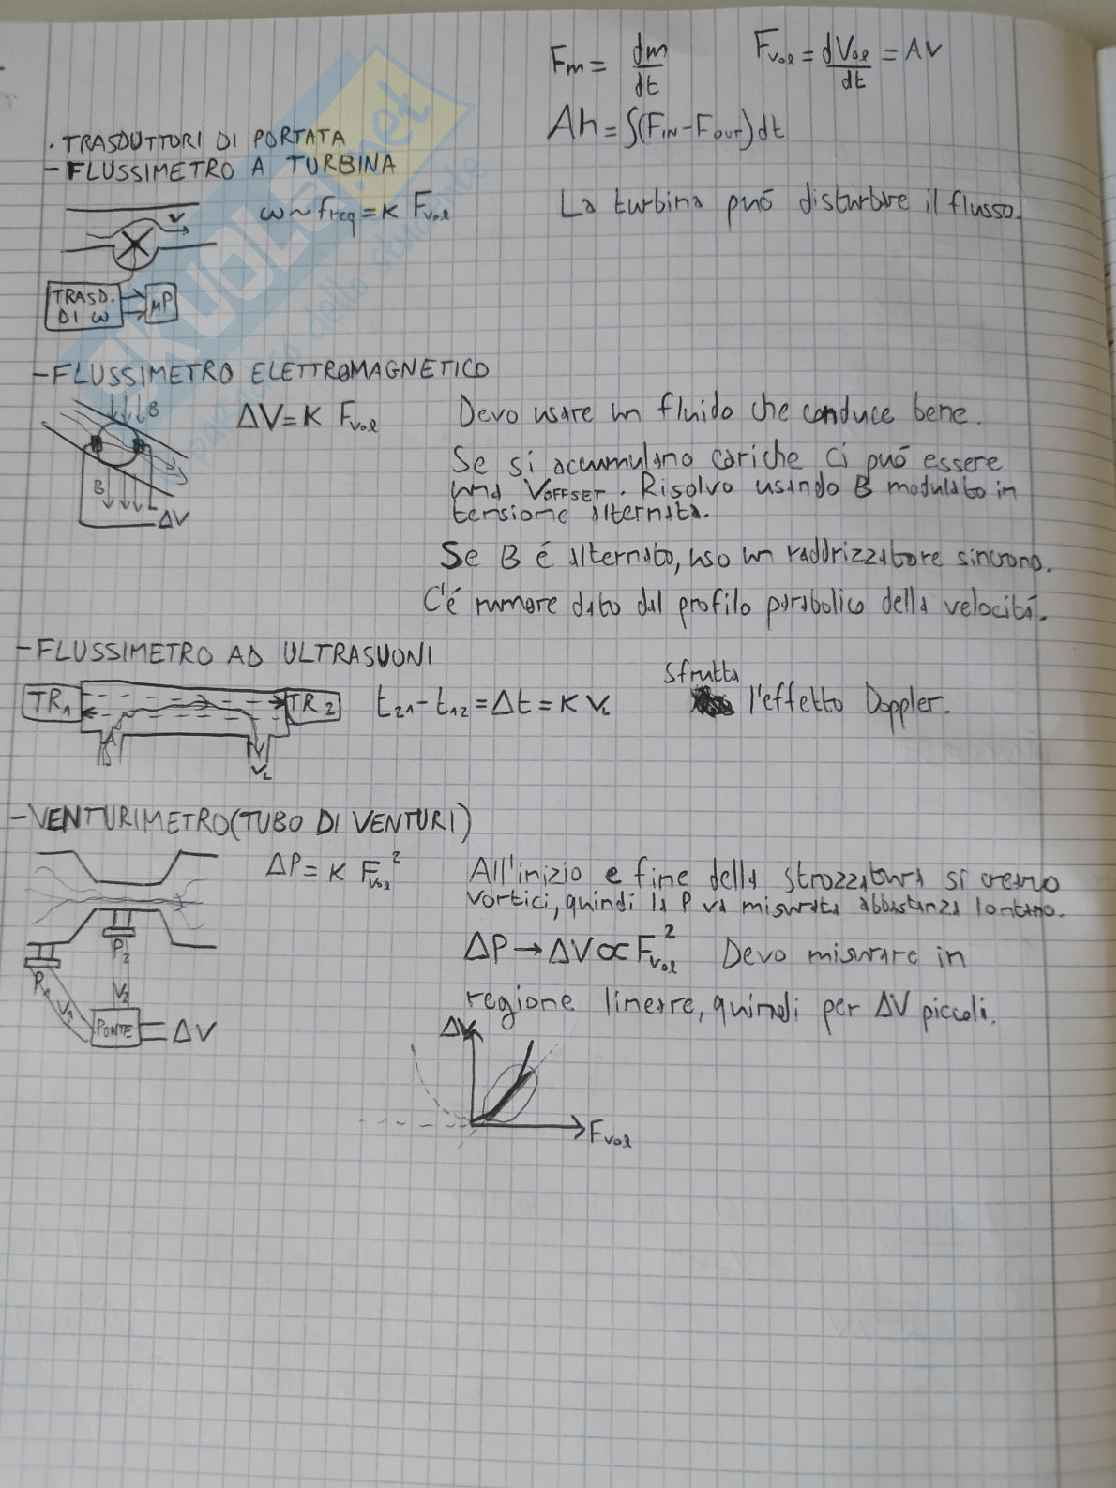 Fm = dm/dt
Fvol = dVol/dt = AV
Ah = ∫(FIN - FOUT) dt
· TRASDUTTORI DI PORTATA
- FLUSSIMETRO A TURBINA
ω ~ freq = K Fvol
La turbina puó disturbare il flusso.
V
TRASD.
DI ω
μP
SKUOLA.net
- FLUSSIMETRO ELETTROMAGNETICO
B
ΔV = K Fvol
Devo usare un fluido che conduce bene.
Se si accumulano cariche ci puó essere
una VOFFSET. Risolvo usando B modulato in
tensione alternata.
B
ΔV
Se B é alternato, uso un raddrizzatore sincrono.
C'é rumore dato dal profilo parabolico della velocitá.
- FLUSSIMETRO AD ULTRASUONI
TR1
TR2
t21 - t12 = Δt = K VL
sfrutta
l'effetto Doppler.
VL
- VENTURIMETRO (TUBO DI VENTURI)
ΔP = K Fvol²
All'inizio e fine della strozzatura si creano
vortici, quindi la P va misurata abbastanza lontano.
ΔP → ΔV ∝ Fvol² Devo misurare in
regione lineare, quindi per ΔV piccoli.
P2
P1
V1
V2
PONTE
ΔV
ΔV
Fvol